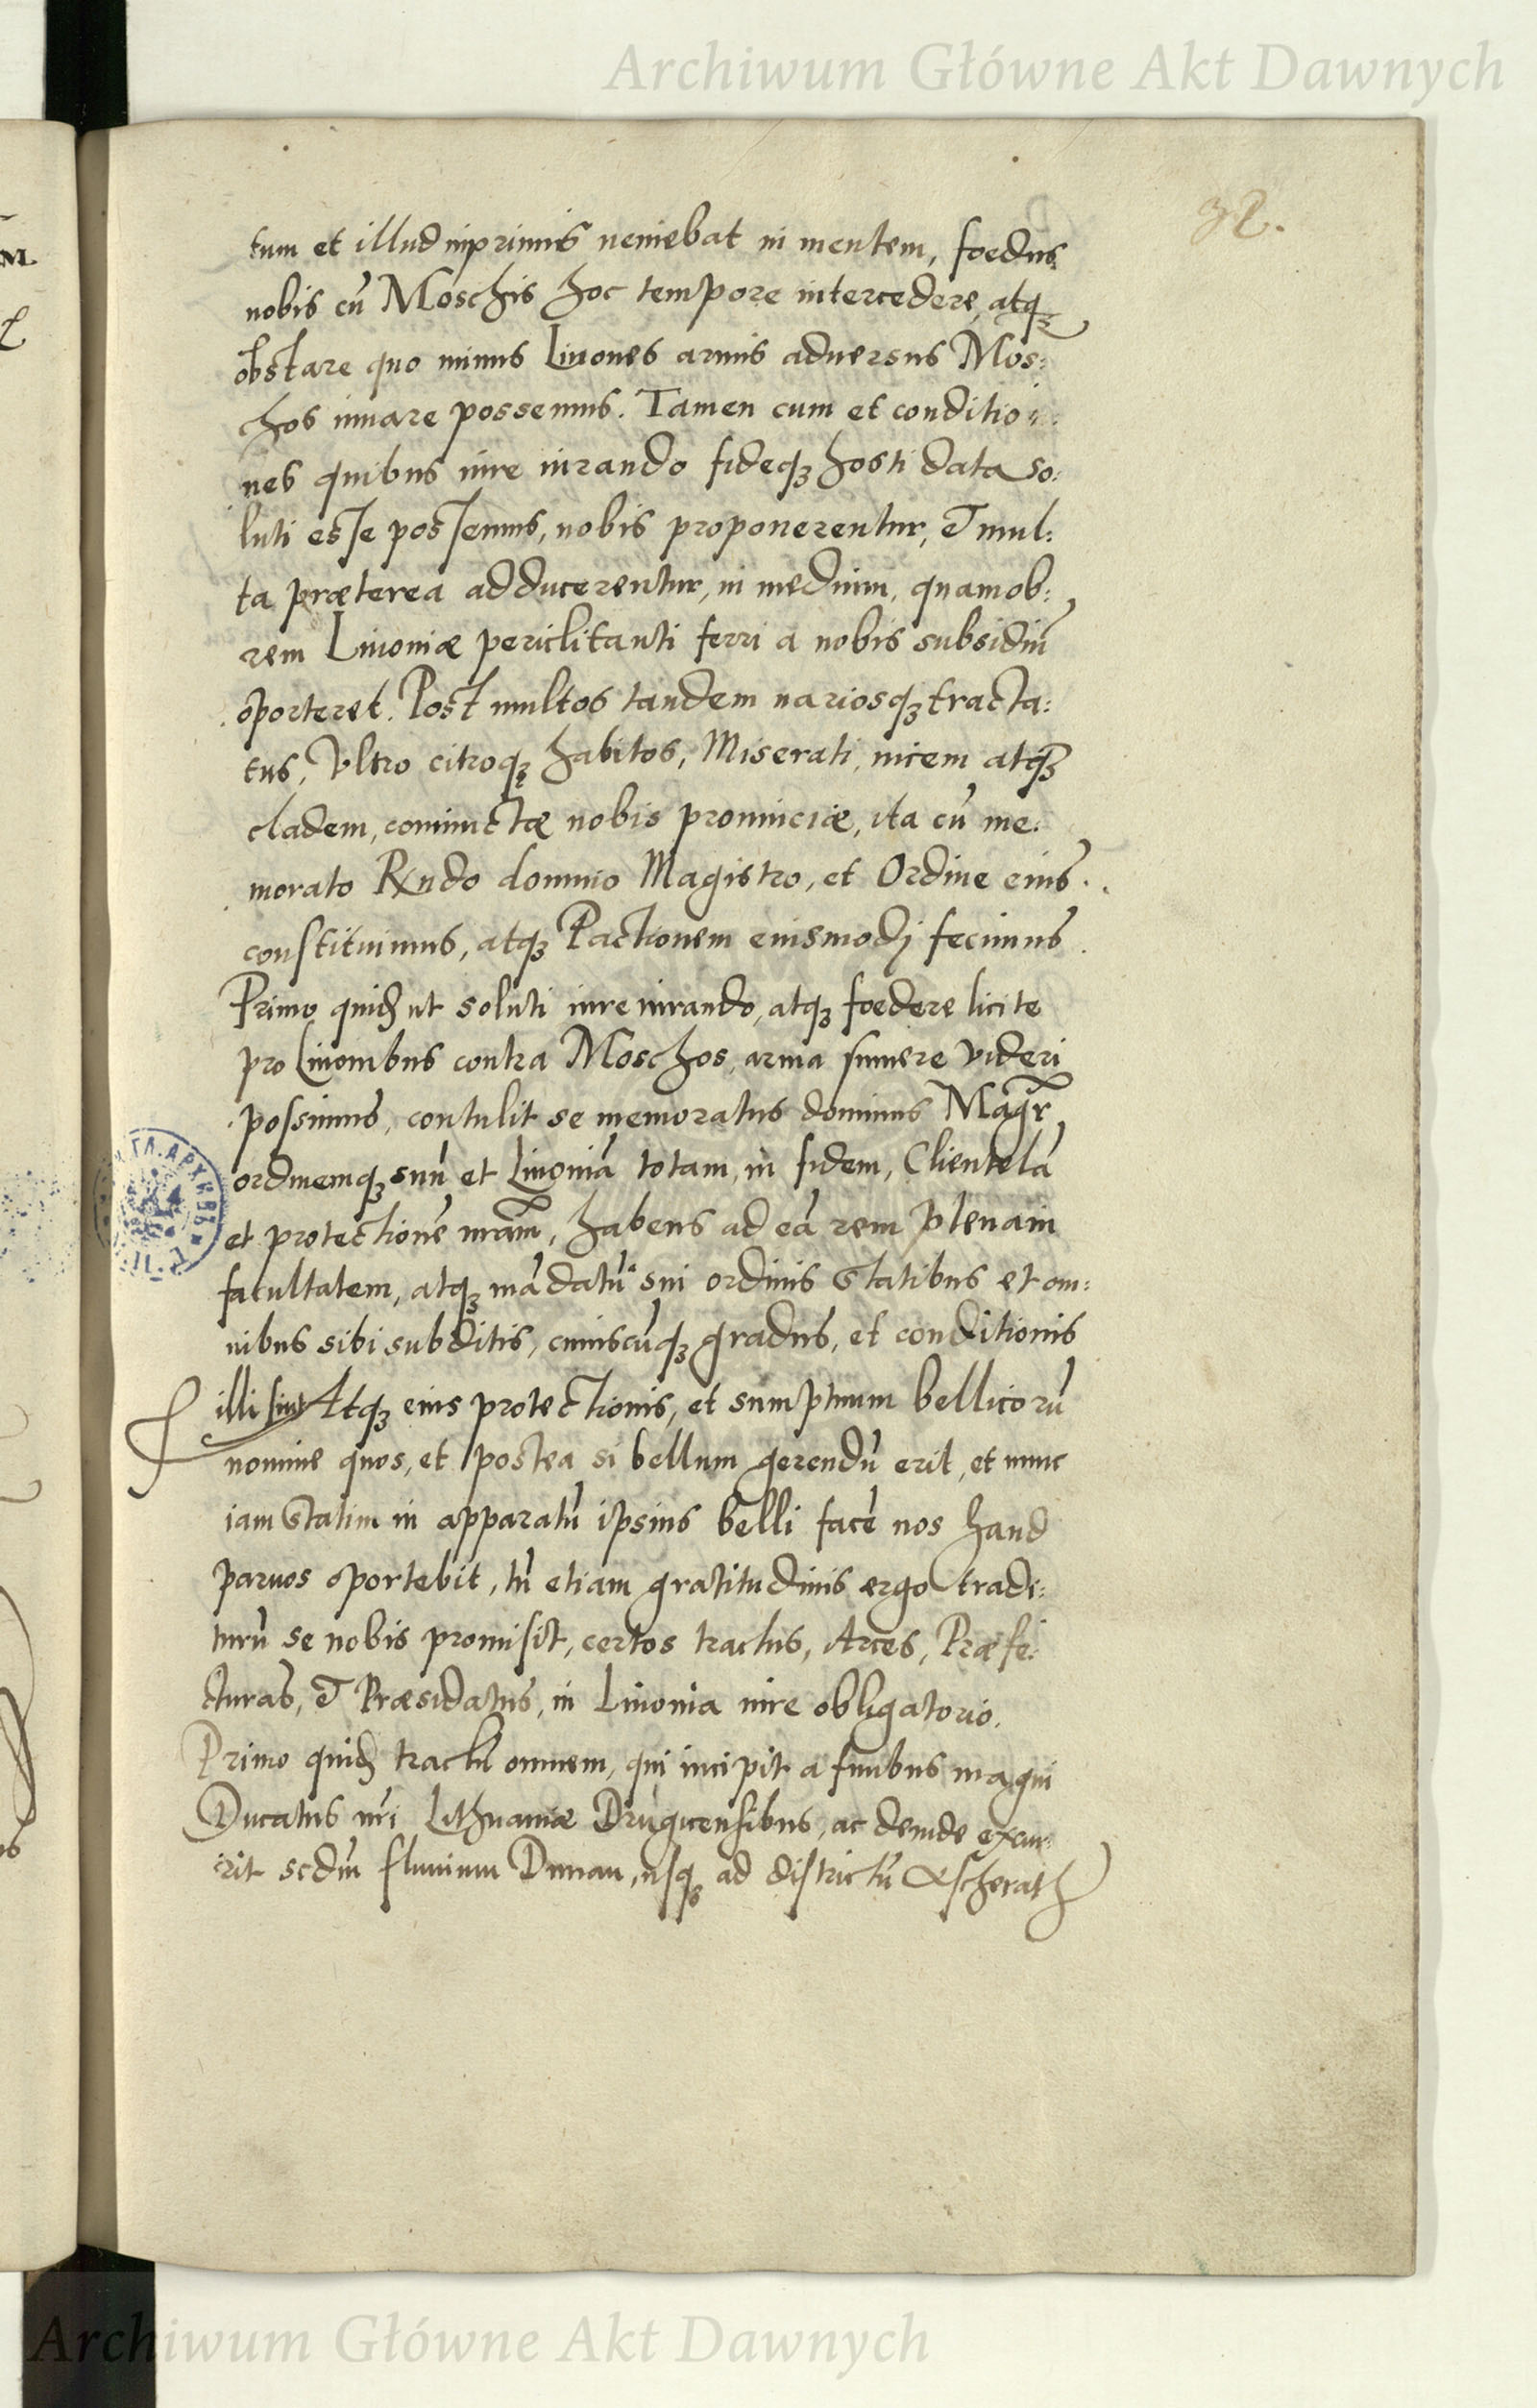 Archiwum Główne Akt Dawnych
32.
tum et illud inprimis veniebat in mentem, foedus
nobis cũ Moschis hoc tempore intercedere, atqꝫ
obstare quo minus Livones armis adversus Mos:
chos iuvare possemus. Tamen cum et conditio:
nes quibus iure iurando fideqꝫ hosti data so:
luti esse possemus, nobis proponerentur, & mul:
ta præterea adducerentur, in medium, quamob:
rem Livoniæ periclitanti ferri a nobis subsidiũ
oporteret. Post multos tandem variosqꝫ tracta:
tus, Vltro citroqꝫ habitos, Miserati, vicem atqꝫ
cladem, coniunctæ nobis provinciæ, ita cũ me:
morato Rndo domino Magistro, et Ordine eius
constituimus, atqꝫ Pactionem eiusmodj fecimus
Primo quidẽ ut soluti iure iurando, atqꝫ foedere licite
pro Livonibus contra Moschos, arma sumere videri
possimus, contulit se memoratus dominus Magr̃,
ordinemqꝫ suũ et Livoniã totam, in fidem, Clientelã
et protectionẽ nr̃am, habens ad eã rem plenam
facultatem, atqꝫ mãdatũ sui ordinis Statibus et om:
nibus sibi subditis, cuiuscũqꝫ gradus, et conditionis
illi sint Atqꝫ eius protectionis, et sumptuum bellicorũ
nomine quos, et postea si bellum gerendũ erit, et nunc
iam Statim in apparatũ ipsius belli facẽ nos haud
parvos oportebit, tũ etiam gratitudinis ergo tradi:
turũ se nobis promisit, certos tractus, Arces, Præfe:
cturas, & Præsidatus, in Livonia iure obligatorio.
Primo quidẽ tractũ omnem, qui incipit a finibus magni
Ducatus nr̃i Lithuaniæ Drugicensibus, ac deinde excur:
rit scdũ fluvium Dunau, usqꝫ ad districtũ Ascherath
Archiwum Główne Akt Dawnych